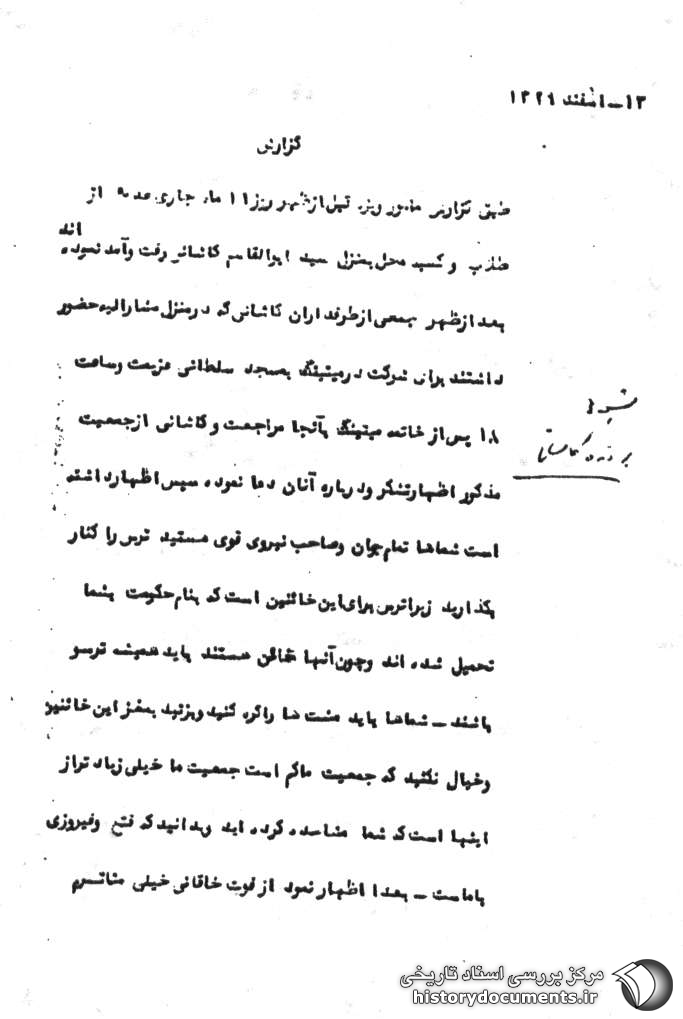 ۱۳-اسفند ۱۳۲۹
گزارش
طبق گزارش مامور ویژه قبل از ظهر روز ۱۱ ماه جاری عده ای از
طلاب و کسبه محل بمنزل سید ابوالقاسم کاشانی رفت وآمد نموده اند
بعد از ظهر جمعی از طرفداران کاشانی که در منزل مشارالیه حضور
داشتند برای شرکت در میتینگ بمسجد سلطانی عزیمت وساعت
۱۸ پس از خاتمه میتینگ بآنجا مراجعت و کاشانی از جمعیت
مذکور اظهار تشکر ودرباره آنان دعا نموده سپس اظهار داشته
است شماها تمام جوان وصاحب نیروی قوی هستید ترس را کنار
بگذارید زیرا ترس برای این خائنین است که بنام حکومت بشما
تحمیل شده اند وچون آنها خائن هستند باید همیشه ترسو
باشند - شماها باید مشت ها را گره کنید وبزنید بمغز این خائنین
وخیال نکنید که جمعیت ماکم است جمعیت ما خیلی زیاد تراز
اینها است که شما مشاهده کرده اید وبدانید که فتح وفیروزی
باماست - بعدا اظهار نمود از فوت خاقانی خیلی متاثرم
پرونده کاشانی
مرکز بررسی اسناد تاریخی
historydocuments.ir